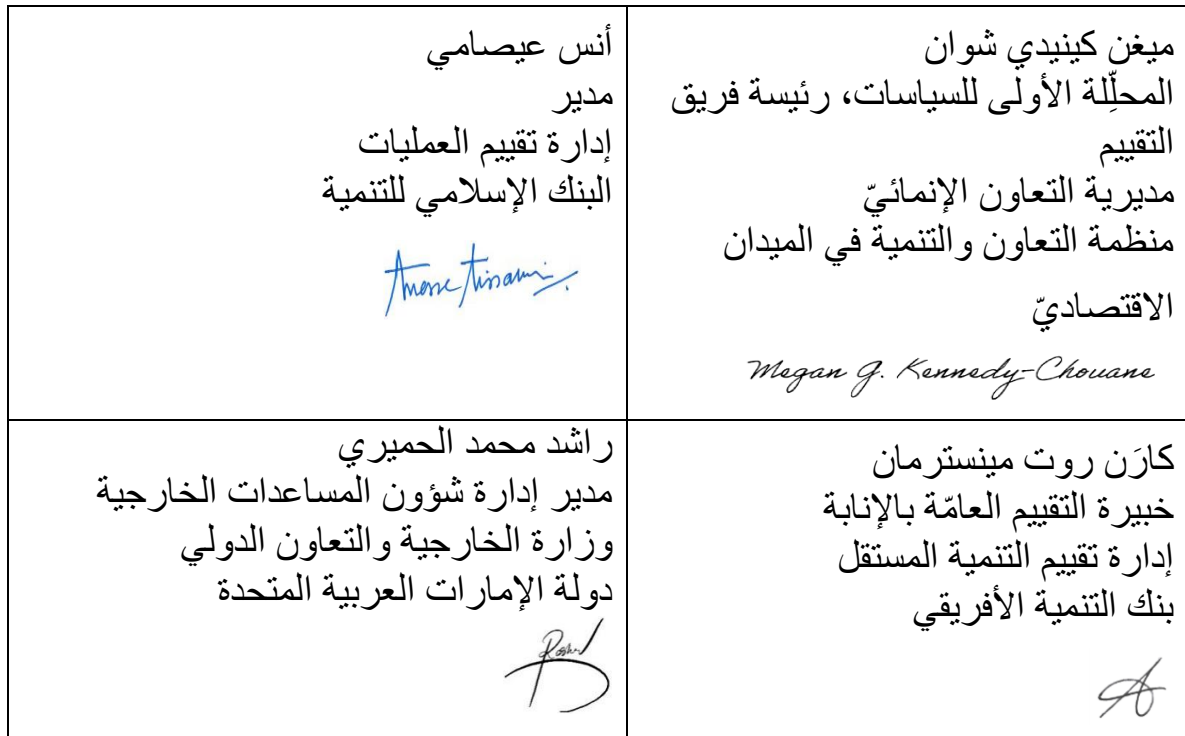 ميغن كينيدي شوان
المحلِّلة الأولى للسياسات، رئيسة فريق
التقييم
مديرية التعاون الإنمائيّ
منظمة التعاون والتنمية في الميدان
الاقتصاديّ
Megan G. Kennedy-Chouane
أنس عيصامي
مدير
إدارة تقييم العمليات
البنك الإسلامي للتنمية
Anasse Aissami
كارَن روت مينسترمان
خبيرة التقييم العامّة بالإنابة
إدارة تقييم التنمية المستقل
بنك التنمية الأفريقي
راشد محمد الحميري
مدير إدارة شؤون المساعدات الخارجية
وزارة الخارجية والتعاون الدولي
دولة الإمارات العربية المتحدة